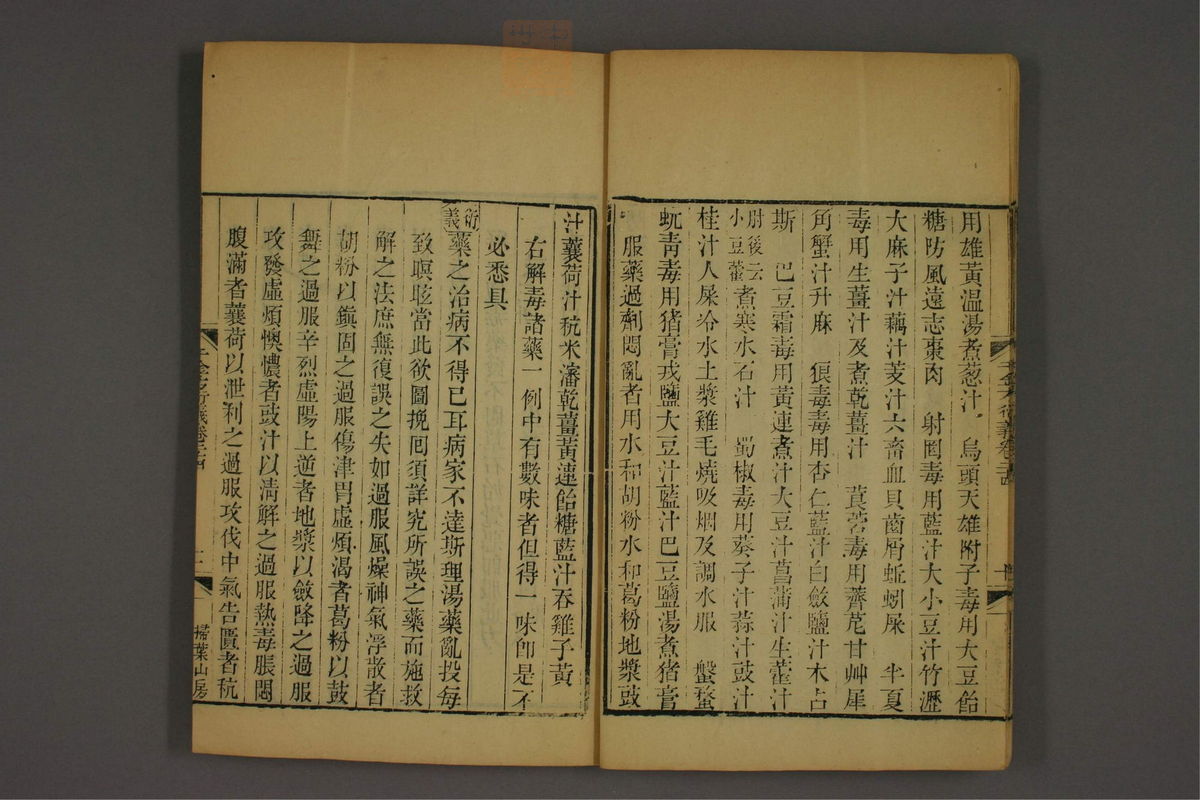 用雄黃溫湯煮葱汁　烏頭天雄附子毒用大豆飴
糖防風遠志棗肉　射罔毒用藍汁大小豆汁竹瀝
大麻子汁藕汁芰汁六畜血貝齒屑蚯蚓屎　半夏
毒用生薑汁及煮乾薑汁　莨菪毒用薺苨甘艸犀
角蟹汁升麻　狼毒毒用杏仁藍汁白斂鹽汁木占
斯　巴豆霜毒用黃連煮汁大豆汁菖蒲汁生藿汁
肘後云小豆藿煮寒水石汁　蜀椒毒用葵子汁蒜汁豉汁
桂汁人屎冷水土漿雞毛燒吸烟及調水服　盤蝥
蚖靑毒用猪膏戎鹽大豆汁藍汁巴豆鹽湯煮猪膏
服藥過劑悶亂者用水和胡粉水和葛粉地漿豉
汁蘘荷汁秔米瀋乾薑黃連飴糖藍汁吞雞子黃
右解毒諸藥一例中有數味者但得一味卽是不
必悉具
衍義藥之治病不得已耳病家不達斯理湯藥亂投每
致瞑眩當此欲圖挽囘須詳究所誤之藥而施救
解之法庶無復誤之失如過服風燥神氣浮散者
胡粉以鎭固之過服傷津胃虛煩渴者葛粉以鼓
舞之過服辛烈虛陽上逆者地漿以斂降之過服
攻發虛煩懊憹者豉汁以淸解之過服熱毒脹悶
腹滿者蘘荷以泄利之過服攻伐中氣告匱者秔
掃葉山房